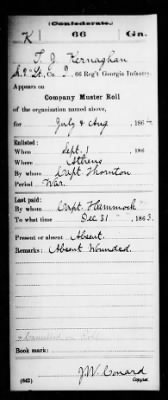 (Confederate.)
K 66 Ga.
T. J. Kernaghan
Co. 66 Reg't Georgia Infantry.
Appears on
Company Muster Roll
of the organization named above,
for July & Aug , 186
Enlisted:
When Sept. 1 , 186
Where Athens
By whom Capt Thornton
Period War.
Last paid:
By whom Capt Hammock
To what time Dec 31 , 1863.
Present or absent Absent.
Remarks: Absent Wounded.
Book mark:
(642) J. W. Conard
Copyist.